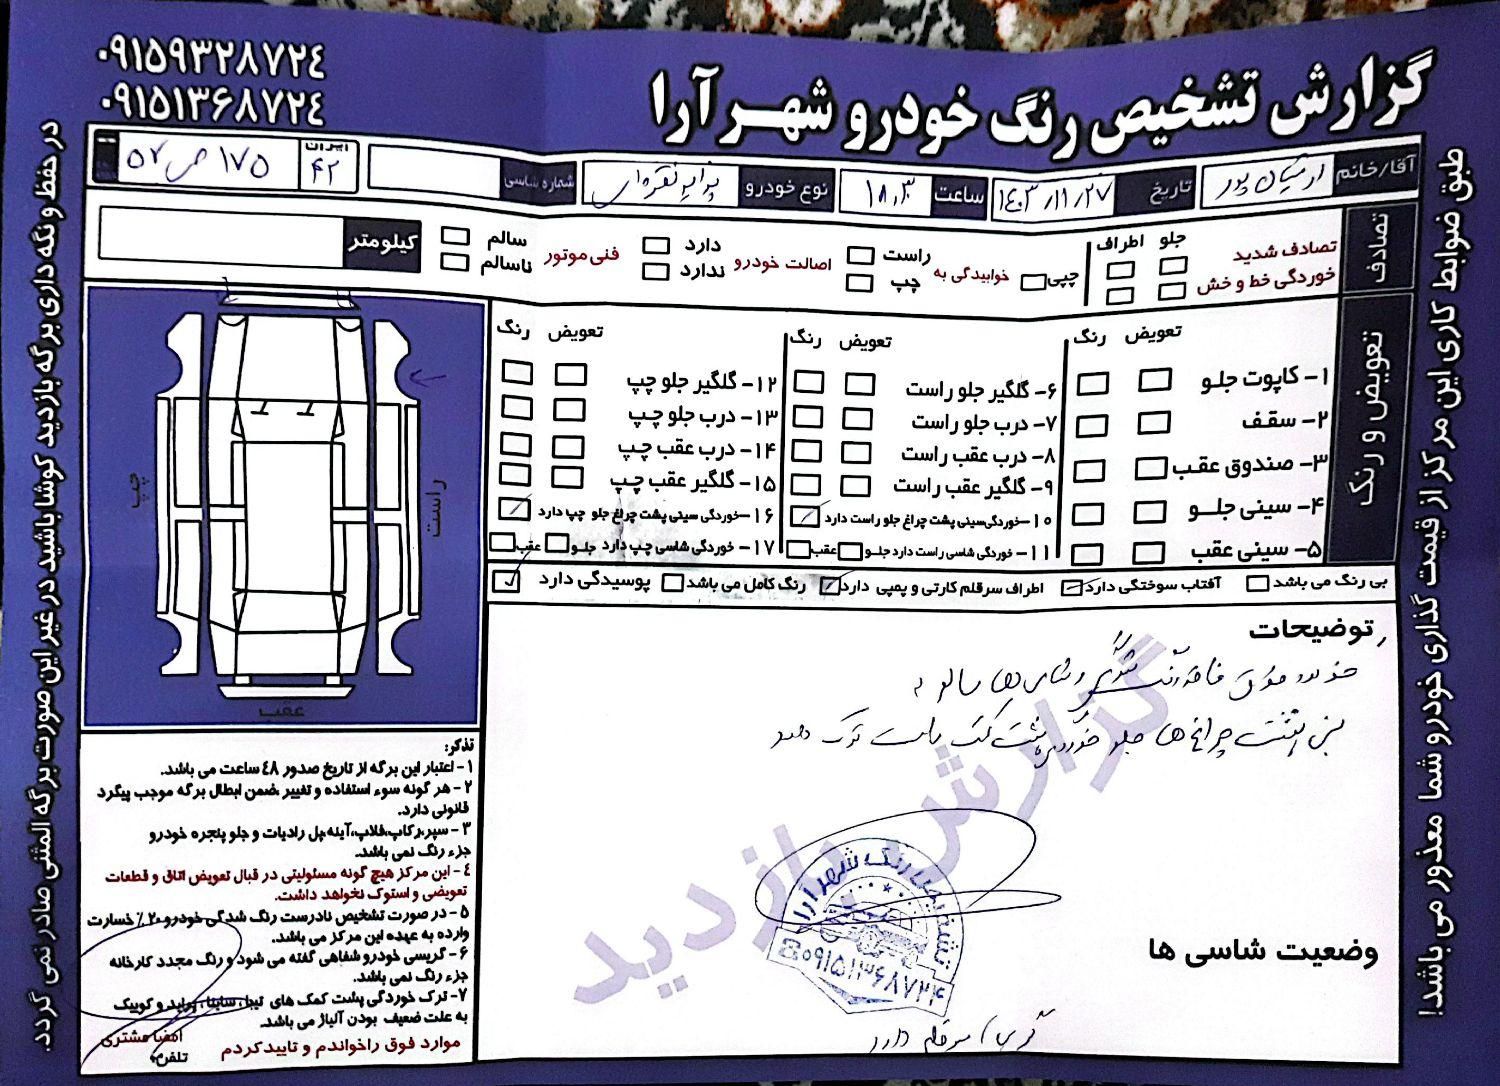 گزارش تشخیص رنگ خودرو شهر آرا
۰۹۱۵۹۳۲۸۷۲٤
۰۹۱۵۱۳۶۸۷۲٤
آقا/خانم
تاریخ ۱۴۰۳/۱۱/۲۷
ساعت ۱۸:۳۰
نوع خودرو پراید نقره‌ای
شماره شاسی
ایران ۴۲
۱۷۵ ص ۵۲
تصادف
تصادف شدید
خوردگی خط و خش
جلو
اطراف
چپی
خوابیدگی به
راست
چپ
اصالت خودرو
دارد
ندارد
فنی موتور
سالم
ناسالم
کیلومتر
تعویض و رنگ
تعویض رنگ
۱- کاپوت جلو
۲- سقف
۳- صندوق عقب
۴- سینی جلو
۵- سینی عقب
تعویض رنگ
۶- گلگیر جلو راست
۷- درب جلو راست
۸- درب عقب راست
۹- گلگیر عقب راست
۱۰- خوردگی سینی پشت چراغ جلو راست دارد
۱۱- خوردگی شاسی راست دارد جلو عقب
تعویض رنگ
۱۲- گلگیر جلو چپ
۱۳- درب جلو چپ
۱۴- درب عقب چپ
۱۵- گلگیر عقب چپ
۱۶- خوردگی سینی پشت چراغ جلو چپ دارد
۱۷- خوردگی شاسی چپ دارد جلو عقب
بی رنگ می باشد
آفتاب سوختگی دارد
اطراف سرقلم کارتی و پمپی دارد
رنگ کامل می باشد
پوسیدگی دارد
چپ
راست
عقب
توضیحات
خودرو فوق فاقد رنگ شدگی و شاسی ها سالم
پشت چراغ ها جلو خوردگی پشت کمک راست ترک دارد
گزارش بازدید
تشخیص رنگ شهر آرا
۰۹۱۵۱۳۶۸۷۲۴
وضعیت شاسی ها
سرقلم دارد
تذکر:
۱- اعتبار این برگه از تاریخ صدور ٤۸ ساعت می باشد.
۲- هر گونه سوء استفاده و تغییر ،ضمن ابطال برگه موجب پیگرد
قانونی دارد.
۳- سپر،رکاب،قلاب،آینه،پل رادیات و جلو پنجره خودرو
جزء رنگ نمی باشد.
٤- این مرکز هیچ گونه مسئولیتی در قبال تعویض اتاق و قطعات
تعویضی و استوک نخواهد داشت.
۵- در صورت تشخیص نادرست رنگ شدگی خودرو ۲۰٪ خسارت
وارده به عهده این مرکز می باشد.
۶- گریسی خودرو شفاهی گفته می شود و رنگ مجدد کارخانه
جزء رنگ نمی باشد.
۷- ترک خوردگی پشت کمک های تیبا، ساینا، پراید و کوییک
به علت ضعیف بودن آلیاژ می باشد.
موارد فوق را خواندم و تایید کردم
امضا مشتری
تلفن:
در حفظ و نگه داری برگه بازدید کوشا باشید در غیر این صورت برگه المثنی صادر نمی گردد.
طبق ضوابط کاری این مرکز از قیمت گذاری خودرو شما معذور می باشد!